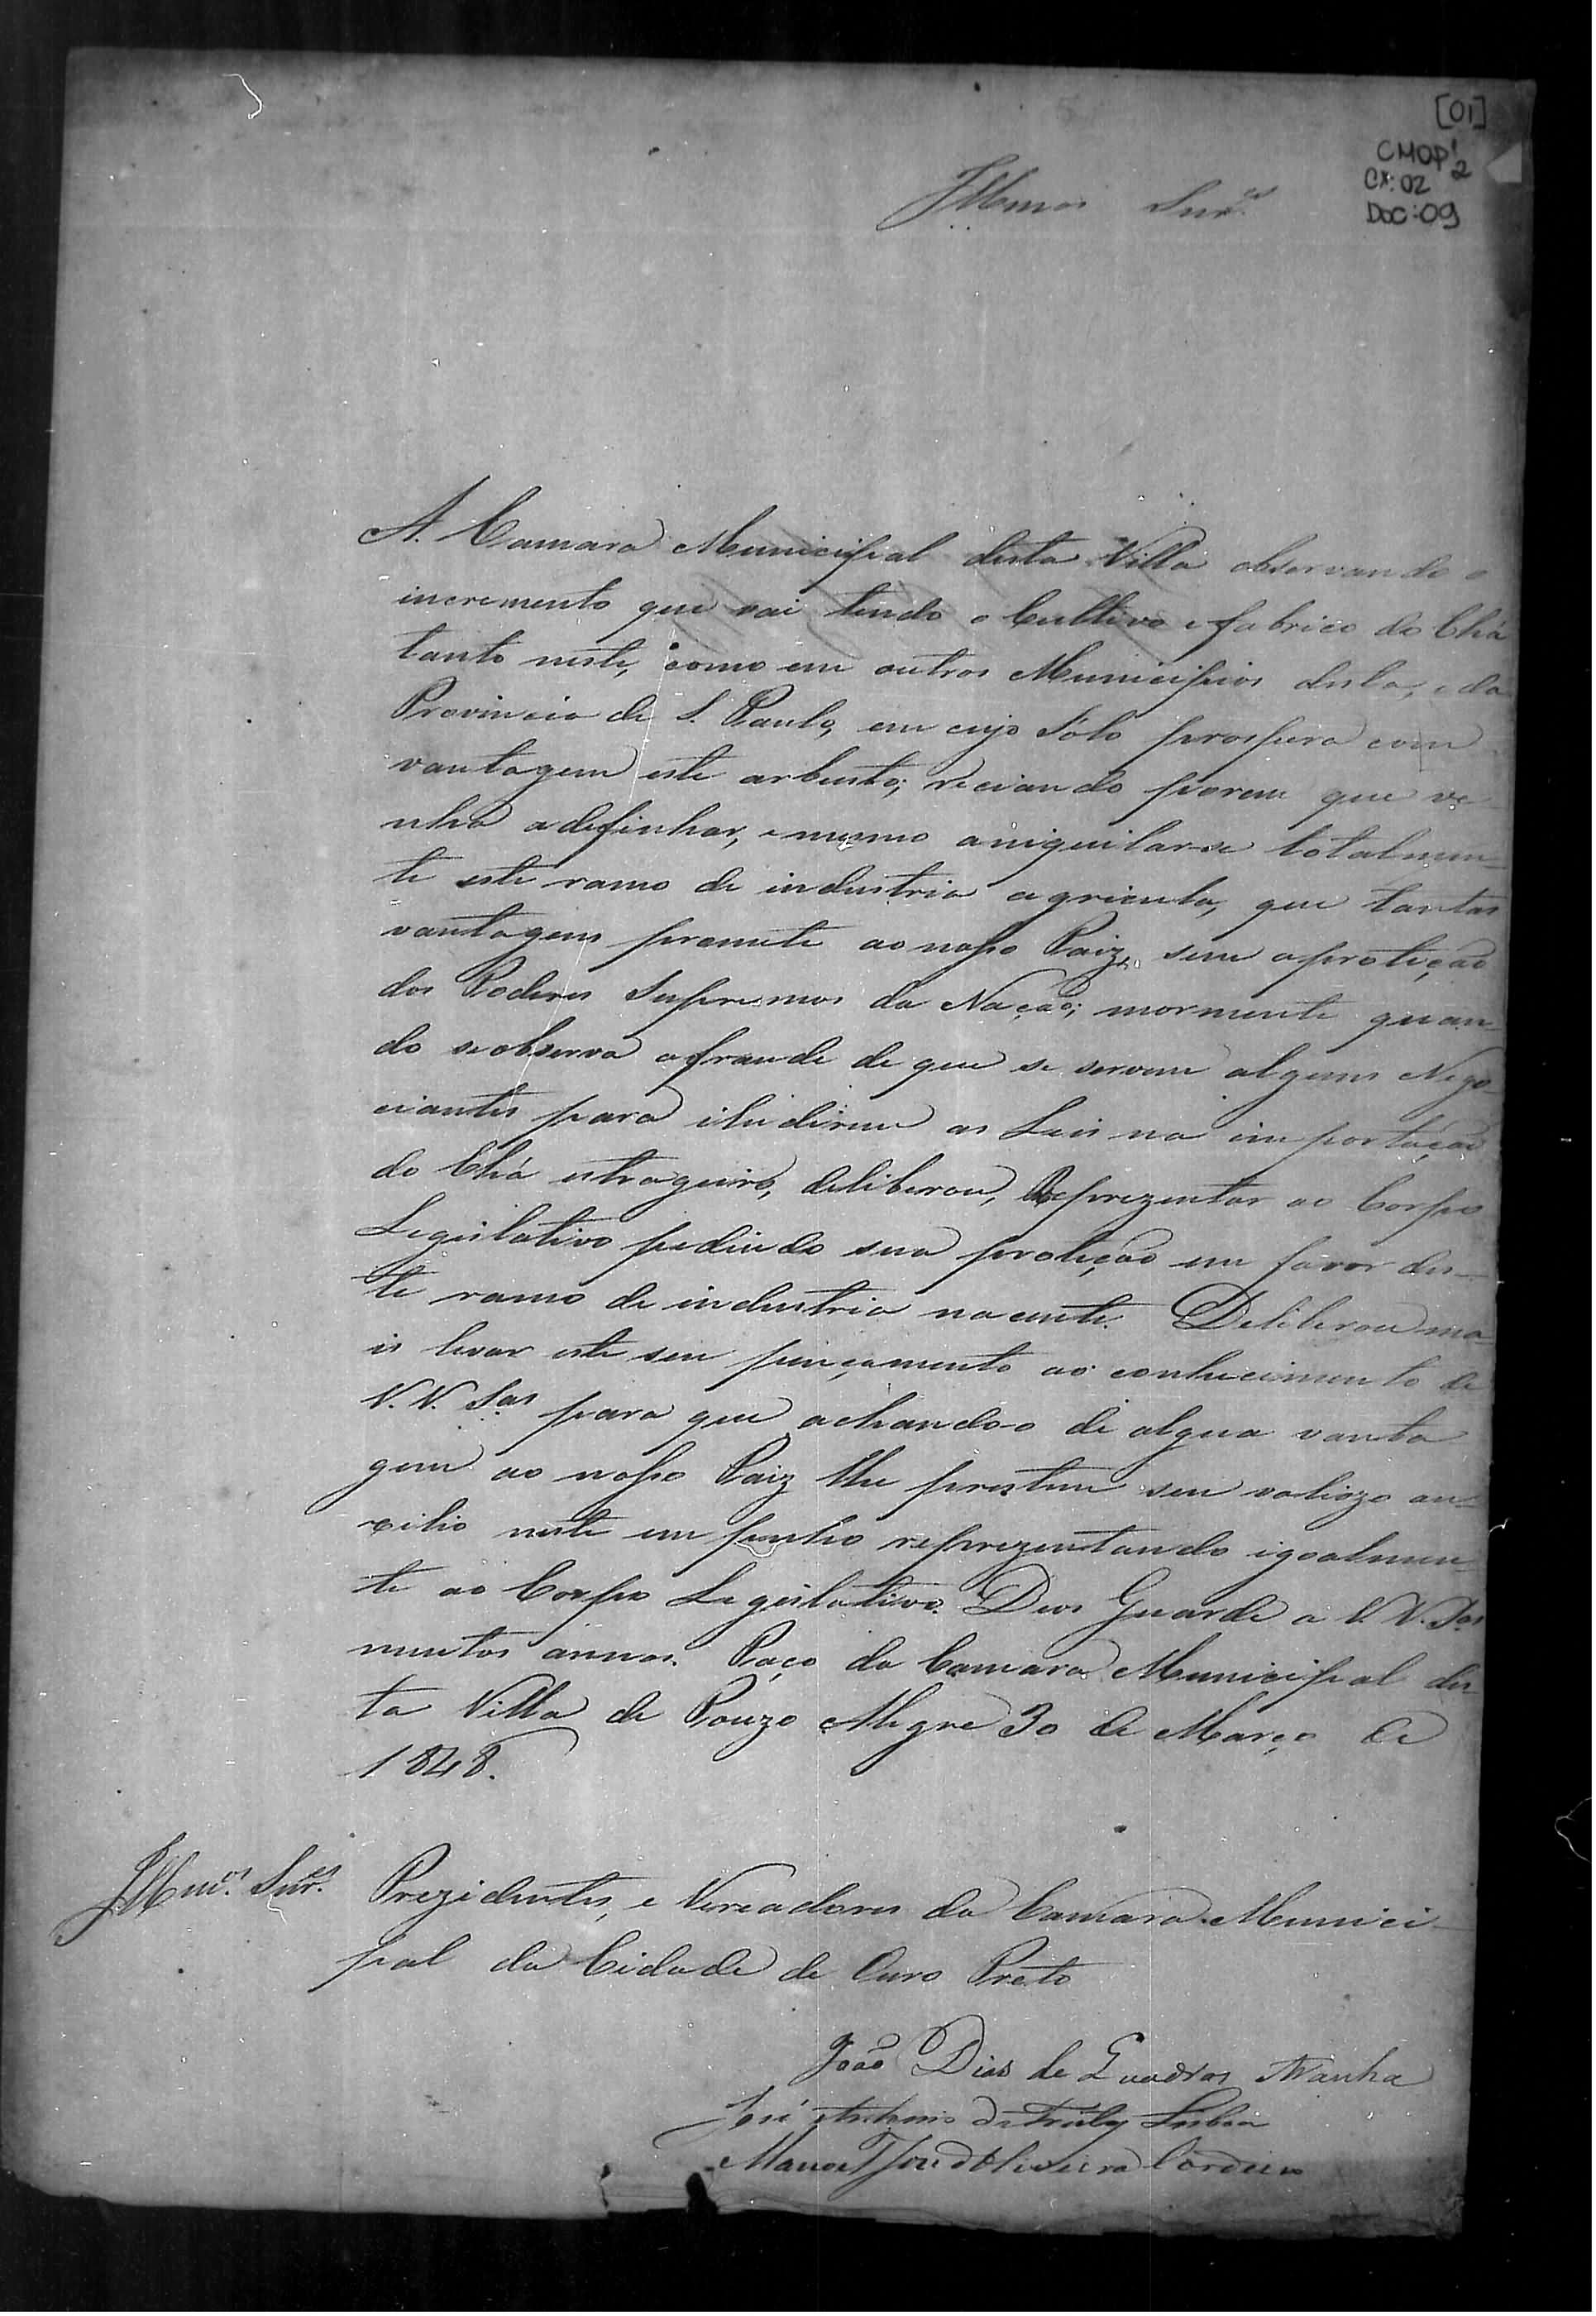 [01]
CMOP1
2
CX: 02
DOC: 09
Illmos Snr.es
A Camara Municipal desta Villa observando o
incremento que vai tendo o Cultivo e fabrico do Chá
tanto neste, como em outros Municipios desta, e da
Provincia de S. Paulo, em cujo Sólo prospera com
vantagem este arbusto; reciando porem que ve-
nha a definhar, e mesmo aniquilar-se totalmen-
te este ramo de industria agricula, que tantas
vantagens promete ao nosso Paiz, sem a proteção
dos Poderes Supremos da Nação; mormente quan-
do se observa a fraude de que se servem alguns Nego-
ciantes para iludirem as Leis na importação
do Chá estrageiro, deliberou, Reprezentar ao Corpo
Legislativo pedindo sua proteção em favor des-
te ramo de industria nacente. Deliberou ma-
is levar este seu pençamento ao conhecimento de
V.V. S.as para que achando-o de algua vanta
gem ao nosso Paiz lhe prestem seu valiozo au-
xilio neste empenho reprezentando igoalmen-
te ao Corpo Legislativo. Deos Guarde a V.V. S.as
muntos annos. Paço da Camara Municipal des-
ta Villa de Pouzo Alegre 30 de Março de
1848.
Illm.os Snr.es Prezidentes, e Vereadores da Camara Munici-
pal da Cidade de Ouro Preto
João Dias de Quadros Aranha
José Antonio de Lisboa
Manoel José d'Oliveira Cordeiro